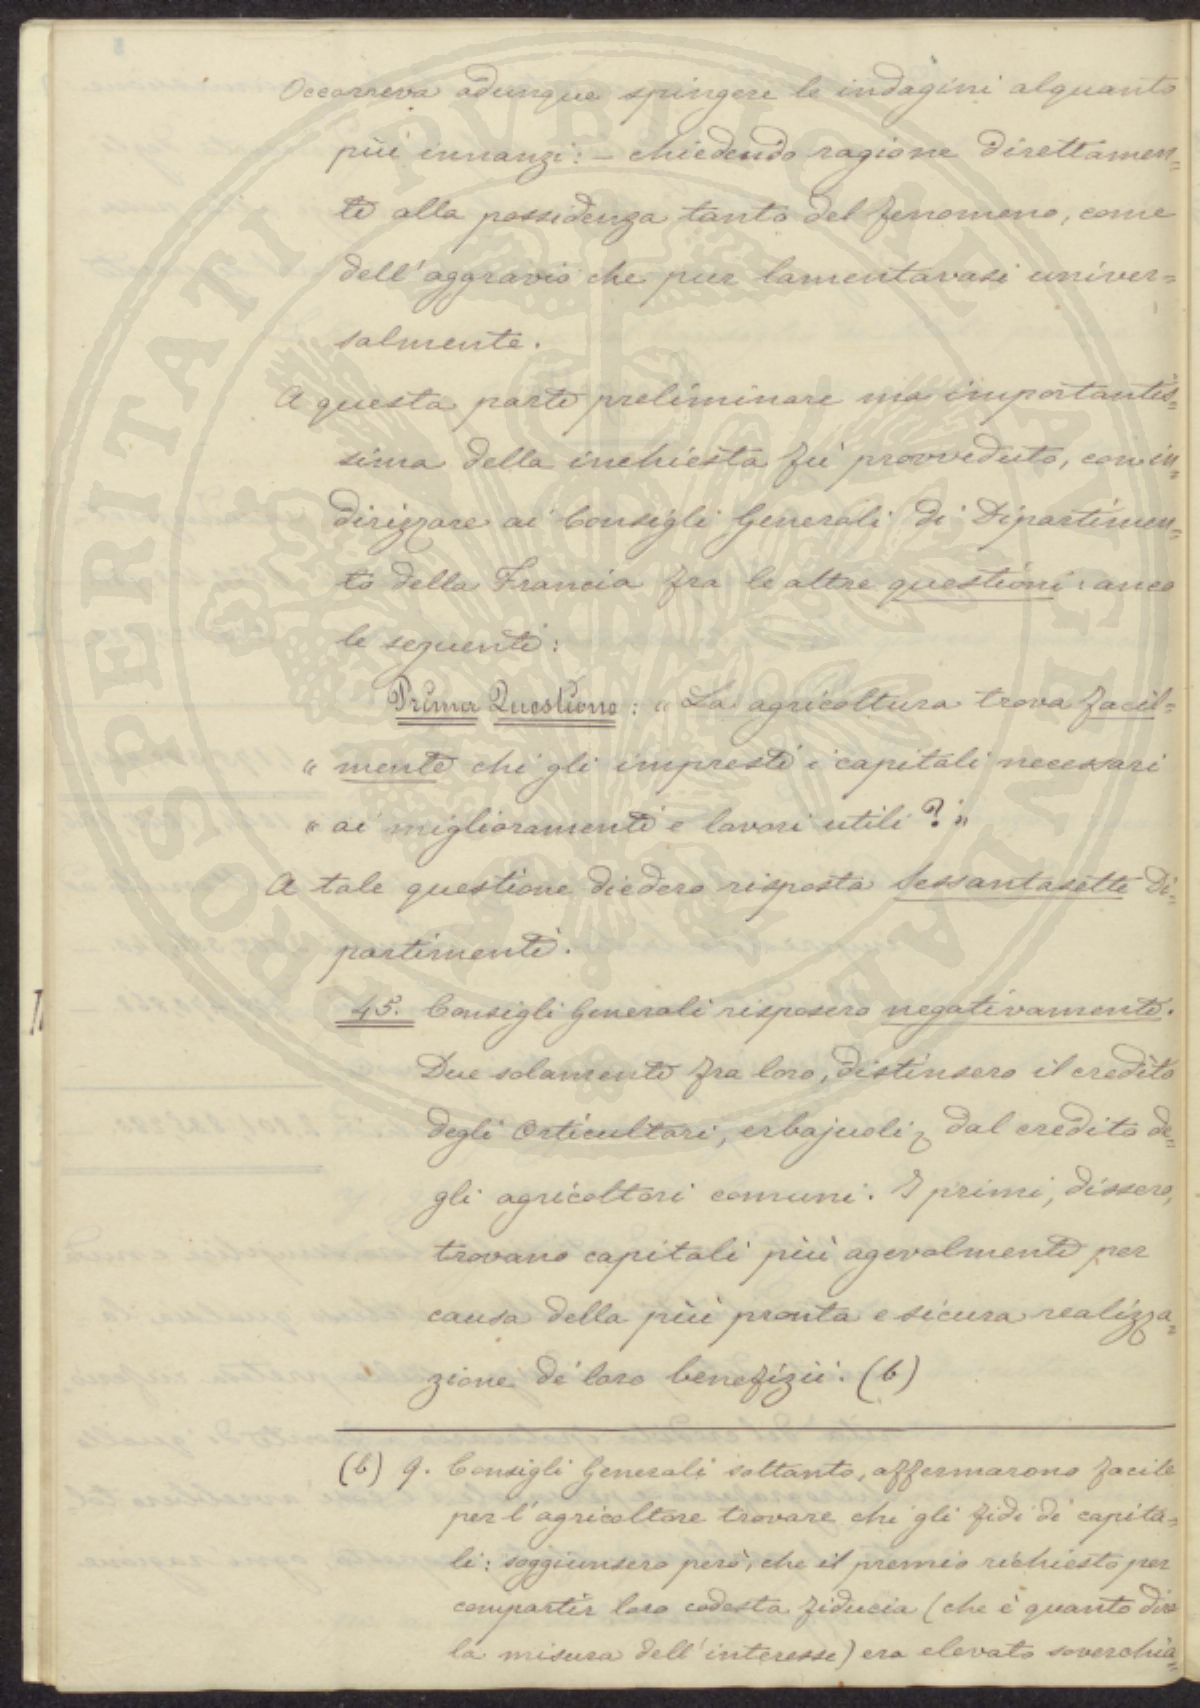 Occorreva adunque spingere le indagini alquanto
più innanzi: – chiedendo ragione direttamen=
te alla possidenza tanto del fenomeno, come
dell'aggravio che pur lamentavasi univer=
salmente.
A questa parte preliminare ma importantis=
sima della inchiesta fù provveduto, con in=
dirizzare ai Consigli Generali di Dipartimen=
to della Francia fra le altre questioni: anco
le seguenti:
Prima Questione: " La agricoltura trova facil=
" mente chi gli impresti i capitali necessari
" ai miglioramenti e lavori utili ? "
A tale questione diedero risposta Sessantasette Di=
partimenti.
45. Consigli Generali risposero negativamente.
Due solamente fra loro, distinsero il credito
degli Orticultori, erbajuoli, dal credito de=
gli agricoltori comuni. I primi, dissero,
trovano capitali più agevolmente per
causa della più pronta e sicura realizza=
zione de' loro benefizii. (b)
(b) 9. Consigli Generali soltanto, affermarono facile
per l'agricoltore trovare chi gli fidi di capita=
li: soggiunsero però, che il premio richiesto per
compartir loro codesta fiducia (che è quanto dire
la misura dell'interesse) era elevato soverchia=
PROSPERITATI PVBLICAE AVGENDAE